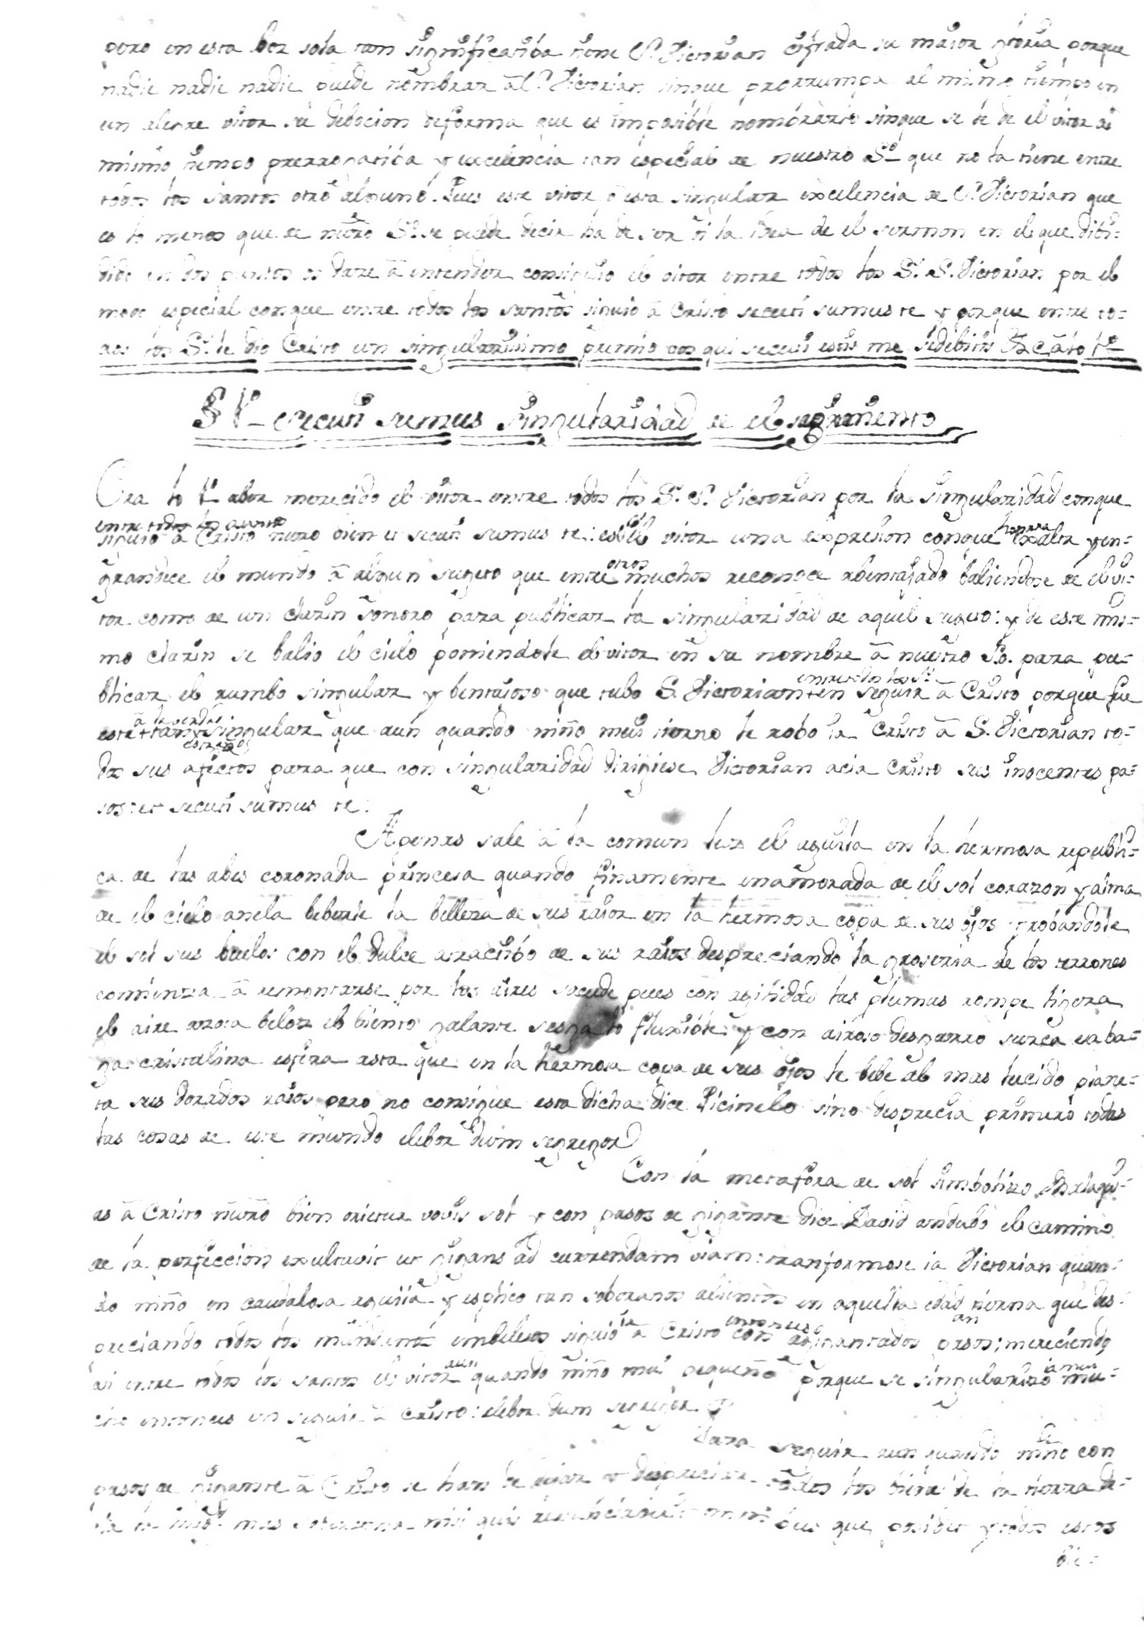 pero en esta boz sola tan significatiba tiene S. Victorian cifrada su maior gloria porque
nadie nadie nadie puede nombrar âl S. Victorian sinque prorrumpa al mismo tiempo en
un alegre vitor su debocion de forma que es imposible nombrarle sinque se le de el vitor al
mismo tiempo prerrogatiba y excelencia tan especial de nuestro Sto. que no la tiene entre
todos los santos otro alguno. Pues este vitor ô esta singular excelencia de S. Victorian que
es lo menos que de nuestro Sto. se puede decir ha de ser la idea de el sermon en el que dibi-
dido en dos puntos os dare â entender consiguio el vitor entre todos los S.S. Victorian por el
modo especial conque entre todos los santos siguio â Cristo secuti sumus te y porque entre to-
dos los Stos. le dio Cristo un singularisimo premio vos qui secuti estis me sedebitis
§ 1º secuti sumus singularidad de el seguimiento
Ora lo 1º aber merecido el vitor entre todos los S.S. Victorian por la singularidad conque
entre todos los santos
siguio â Cristo nuestro bien et secuti sumus te: es el vitor una expresion conque honrra exalta y en-
grandece el mundo â algun sugeto que entre otros muchos reconoce abentajado baliendose de el vi-
tor como de un clarin sonoro para publicar la singularidad de aquel sugeto: y de este mis-
mo clarin se balio el cielo poniendole el vitor en su nombre â nuestro Sto. para pu-
blicar el rumbo singular y bentajoso que tubo S. Victorian entre todos los Stos. en seguir â Cristo porque fue
este tan singular que aun quando niño mui tierno le robo la Cristo â S. Victorian to-
dos sus afectos para que con singularidad dirigiese Victorian acia Cristo sus inocentes pa-
sos: et secuti sumus te.
Apenas sale â la comun luz el aguila en la hermosa republi-
ca de las abes coronada princesa quando finamente enamorada de el sol corazon y alma
de el cielo anela beberle la belleza de sus raios en la hermosa copa de sus ojos y robandole
el sol sus buelos con el dulce atractibo de sus raios despreciando la groseria de los terrones
comienza â remontarse por los aires sacude pues con agilidad las plumas rompe ligera
el aire azota beloz el biento galante sesga lo fluxible y con airoso desgarro surca esa ba-
ga cristalina esfera asta que en la hermosa copa de sus ojos le bebe al mas lucido plane-
ta sus dorados raios pero no consigue esta dicha dice Picinelo sino desprecia primero todas
las cosas de este mundo elebor dum segregor
Con la metafora de sol simbolizo Malaqui-
as â Cristo nuestro bien orietur vobis sol y con pasos de gigante dice David andubo el camino
de la perfeccion exultavit ut gigans ad currendam viam: transformose ia Victorian quan-
do niño en caudalosa aguila y esplico tan soberanos alientos en aquella edad tierna que des-
preciando todos los mundanos embelesos siguio ia â Cristo entonces con agigantados pasos; mereciendo
asi entre todos los santos el vitor aun quando niño mui pequeño porque se singularizo mu-
cho entonces en seguir â Cristo: elebor dum segregor
Para seguir aun quando niño con
pasos de gigante â Cristo se han de dejar y despreciar todos los bienes de la tierra
mas soberana que posidet y todos estos
bie-